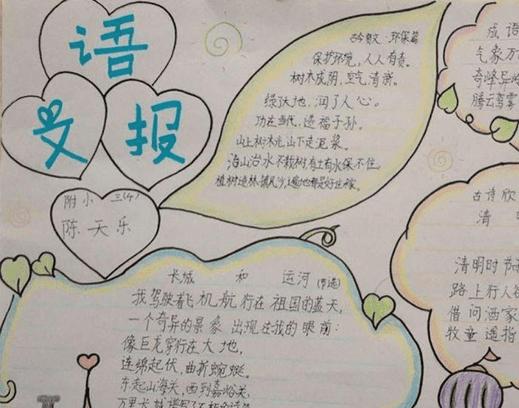 语
文
报
附小 三(4)
陈天乐
吟散文:环保篇
保护环境,人人有责。
树木成阴,空气清新。
绿沃地,润了人心。
功在当代,造福子孙。
山上树木光,山下走泥浆。
治山治水不栽树,有土有水保不住。
植树造林,遍地都是好庄稼。
长城 和 运河(节选)
我驾驶着飞机航行在祖国的蓝天,
一个奇异的景象出现在我的眼前:
像巨龙穿行在大地,
连绵起伏,曲折蜿蜒。
东起山海关,西到嘉峪关,
万里长城
成语
气象万
奇峰异
腾云驾雾
古诗欣
清
清明时节
路上行人
借问酒家
牧童遥指